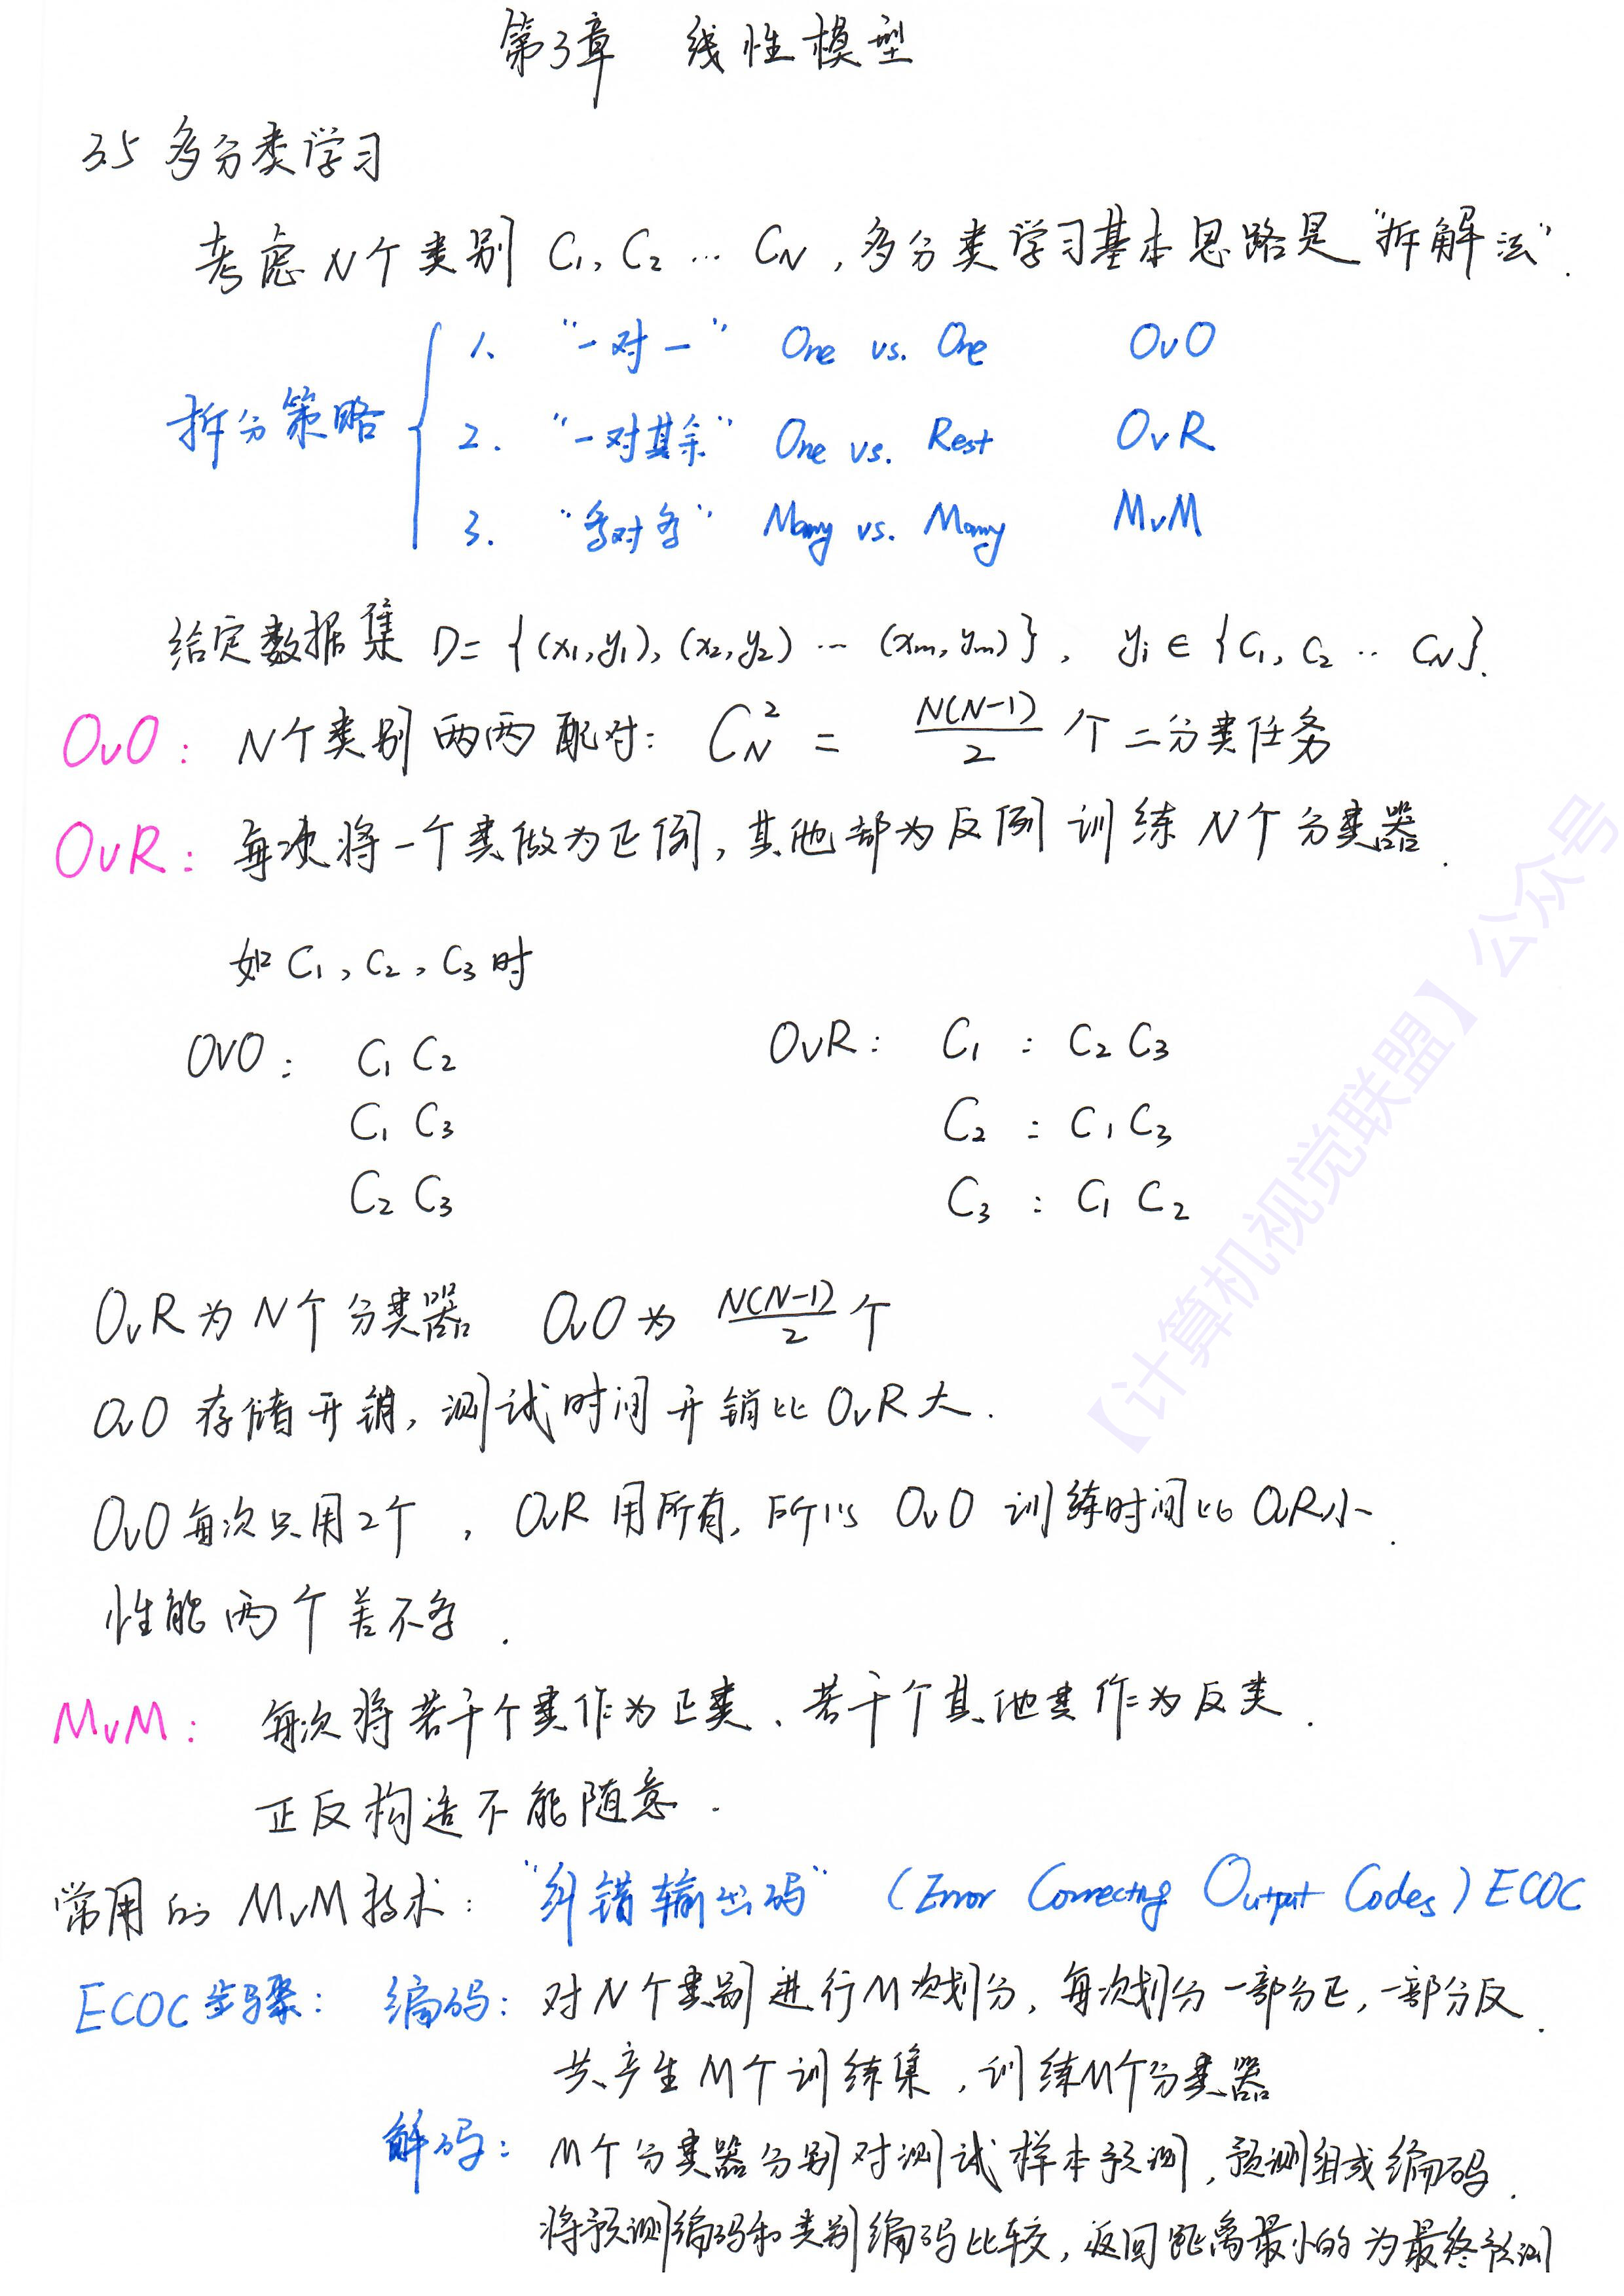 第3章 线性模型
3.5 多分类学习
考虑N个类别 C₁, C₂ … C_N, 多分类学习基本思路是"拆解法".
拆分策略
1. "一对一" One vs. One OvO
2. "一对其余" One vs. Rest OvR
3. "多对多" Many vs. Many MvM
给定数据集 D= {(x₁,y₁), (x₂,y₂) … (xₘ,yₘ)}, yᵢ ∈ {C₁, C₂ … C_N}.
OvO: N个类别两两配对: C_N² = N(N-1)/2 个二分类任务
OvR: 每次将一个类做为正例, 其他部为反例 训练 N个分类器.
如 C₁, C₂, C₃ 时
OVO: C₁ C₂ OvR: C₁ : C₂ C₃
C₁ C₃ C₂ : C₁ C₃
C₂ C₃ C₃ : C₁ C₂
OvR为N个分类器 OvO为 N(N-1)/2 个
OvO 存储开销, 测试时间开销比 OvR大.
OvO每次只用2个, OvR用所有, 所以 OvO 训练时间比 OvR小.
性能两个差不多.
MvM: 每次将若干个类作为正类、若干个其他类作为反类.
正反构造不能随意.
常用的 MvM技术: "纠错输出码" (Error Correcting Output Codes) ECOC
ECOC步骤: 编码: 对N个类别进行M次划分, 每次划分一部分正, 一部分反.
共产生M个训练集, 训练M个分类器
解码: M个分类器分别对测试样本预测, 预测组成编码.
将预测编码和类别编码比较, 返回距离最小的为最终预测
【计算机视觉联盟】公众号